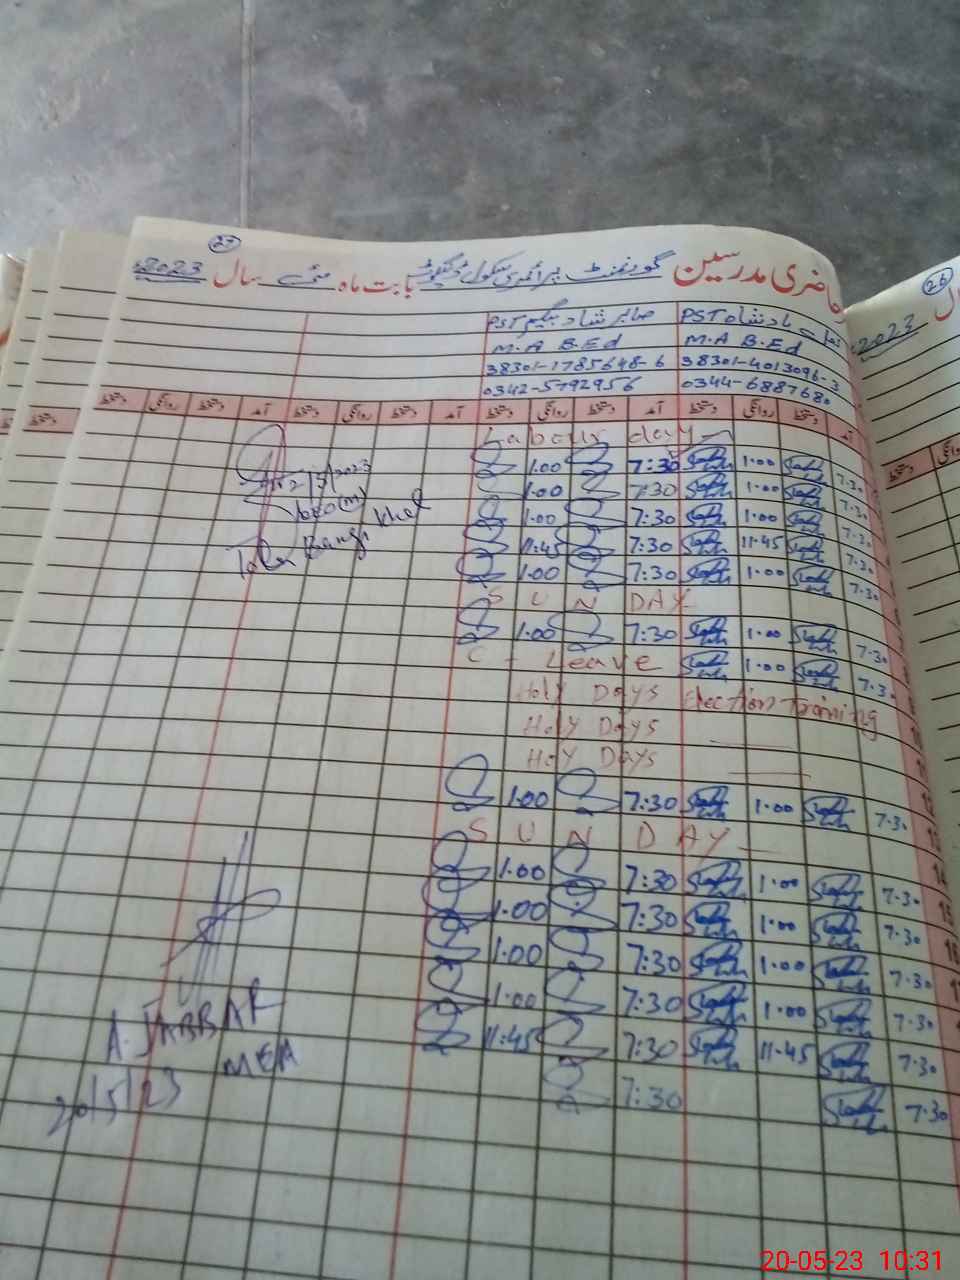 27
حاضری مدرسین گورنمنٹ پرائمری سکول بابت ماہ مئی سال 2023
PST صابر شاد بیگم PST بادشاہ
M.A B.Ed M.A B.Ed
38301-1785648-6 38301-4013096-3
0342-5792956 0344-6887680
دستخط روانگی دستخط آمد دستخط روانگی دستخط آمد دستخط روانگی دستخط آمد دستخط روانگی دستخط آمد
Labour day
1.00 7:30 1.00 7.30
1.00 7:30 1.00 7.30
1.00 7:30 1.00 7.30
11:45 7:30 11.45 7.30
1.00 7:30 1.00 7.30
SUN DAY
1.00 7:30 1.00 7.30
C - Leave 1.00 7.30
Holy Days Election Training
Holy Days
Holy Days
1.00 7:30 1.00 7.30
SUN DAY
1.00 7:30 1.00 7.30
1.00 7:30 1.00 7.30
1.00 7:30 1.00 7.30
1.00 7:30 1.00 7.30
11:45 7:30 11.45 7.30
7:30 7.30
12
13
14
15
16
A. JABBAR
MEA
20/5/23
26
2023
20-05-23 10:31